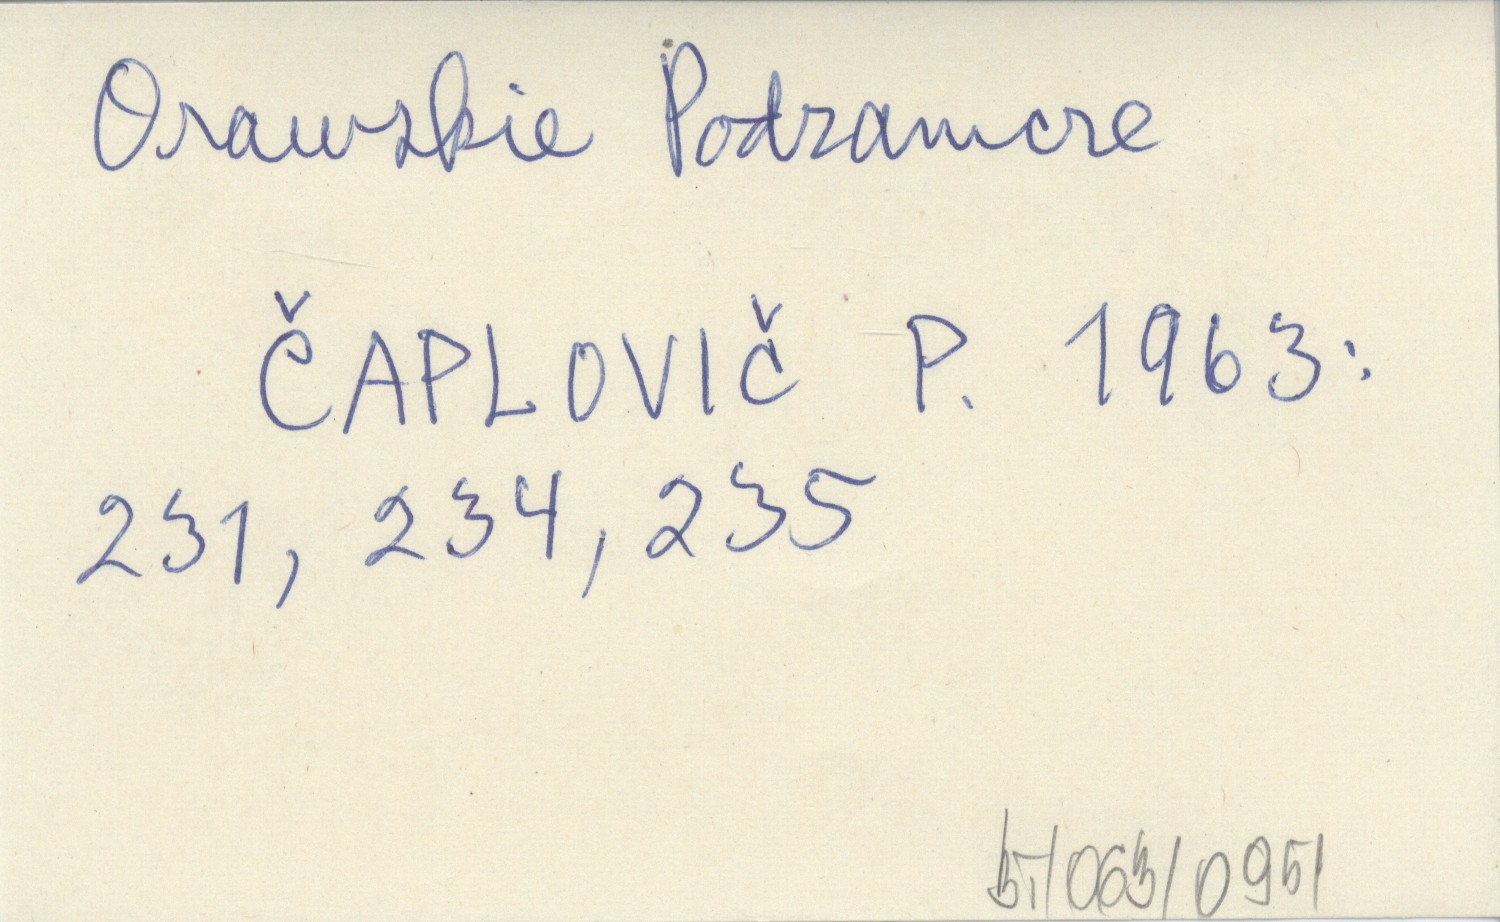 Orawskie Podzamcze
ČAPLOVIČ P. 1963:
231, 234, 235
/063/0951